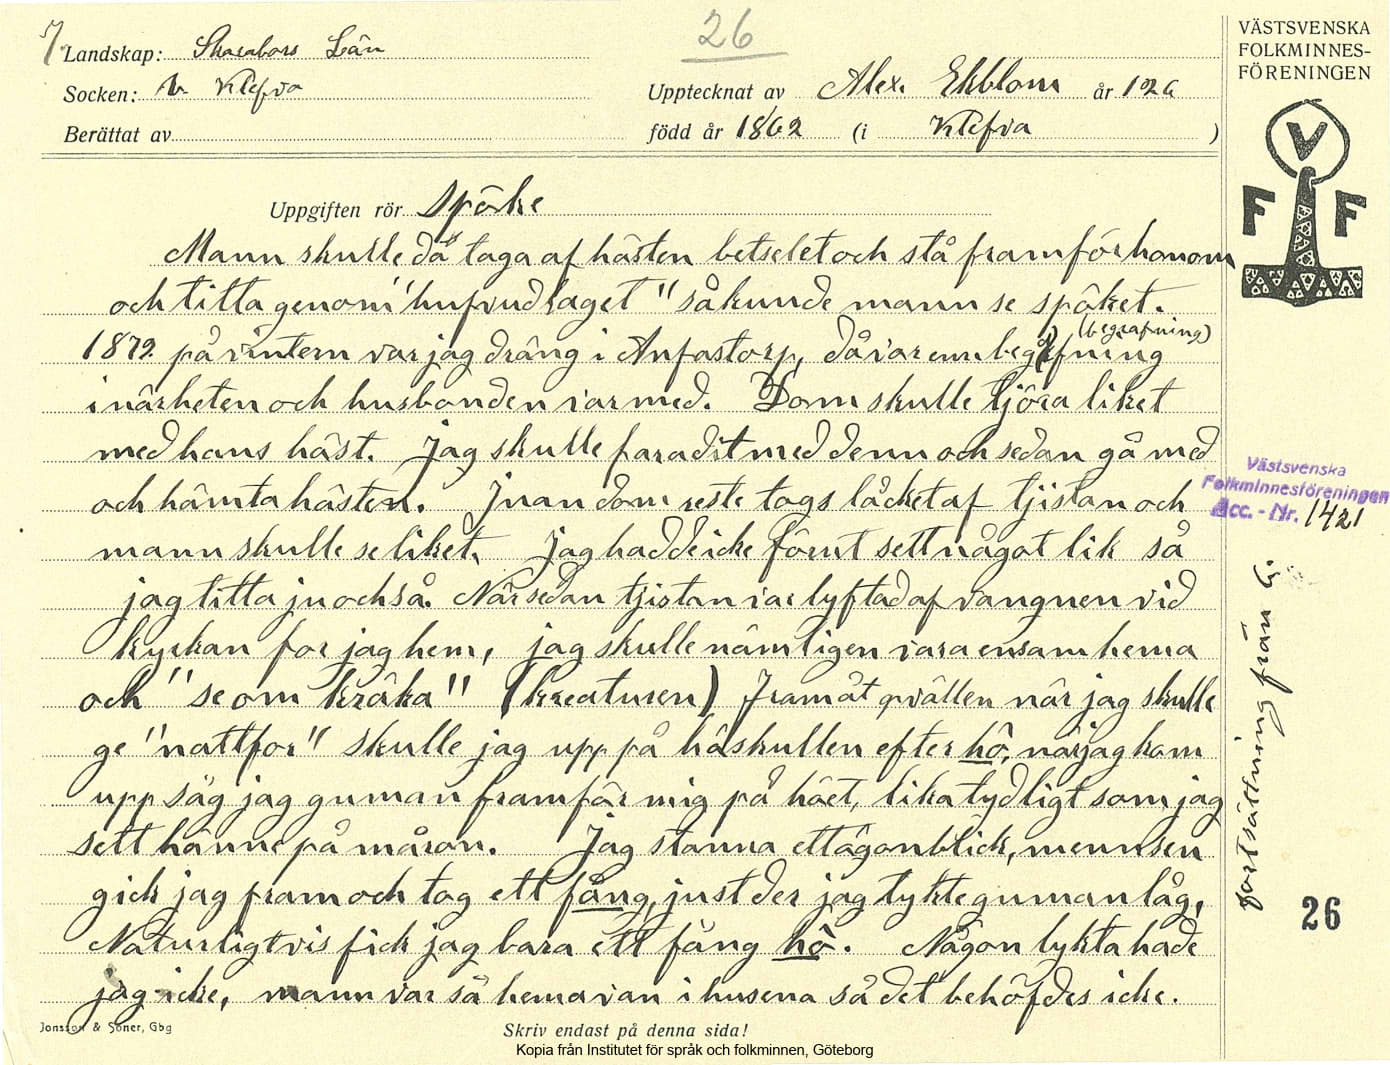 7.
26
Landskap: Skarabors Län
Socken: N. Klefva
Berättat av
Upptecknat av Alex. Ekblom år 192
född år 1862 (i Klefva )
VÄSTSVENSKA
FOLKMINNES-
FÖRENINGEN
V
F F
Uppgiften rör spöke
Mann skulle då taga af hästen betselet och stå framför honom
och titta genom "hufvudlaget" så kunde mann se spöket.
1879 på vintern var jag dräng i Anfastorp, då var enn begrfning (begrafning)
i närheten och husbonden var med. Dom skulle tjöra liket
med hans häst. Jag skulle fara dit med denn och sedan gå med
och hämta hästen. Jnan dom reste togs låcket af tjistan och
mann skulle se liket. Jag hadde icke förut sett något lik så
jag titta ju också. När sedan tjistan var lyftad af vangnen vid
kyrkan for jag hem, jag skulle nämligen vara ensam hema
och "se om kräka" (kreaturen) framåt qvällen när jag skulle
ge "nattfor" skulle jag upp på höskullen efter hö, när jag kom
upp såg jag guman framför mig på höet, lika tydligt som jag
sett hänne på måran. Jag stanna ett ögonblick, menn sen
gick jag fram och tog ett fång, just der jag tykte guman låg,
Naturligtvis fick jag bara ett fång hö. Någon lykta hade
jag icke, mann var så hemavan i husena så det behöfdes icke.
Västsvenska
Folkminnesföreningen
Acc. - Nr. 1421
Fortsättning från 6
26
Jonsson & Söner, Gbg
Skriv endast på denna sida!
Kopia från Institutet för språk och folkminnen, Göteborg